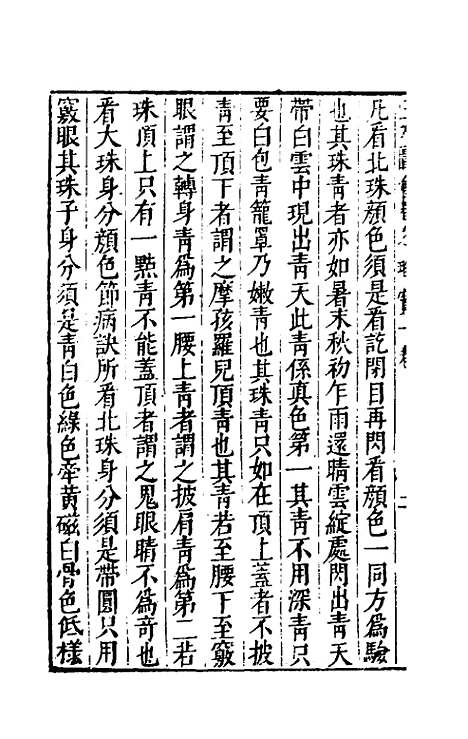 凡看北珠顏色須是看訖閉目再閃看顏色一同方爲驗
也其珠青者亦如暑末秋初乍雨還晴雲綻處閃出青天
帶白雲中現出青天此青係真色第一其青不用深青只
要白包青籠罩乃嫩青也其珠青只如在頂上蓋者不披
青至頂下者謂之摩孩羅兒頂青也其青若至腰下至竅
眼謂之轉身青爲第一腰上青者謂之披肩青爲第二若
珠頂上只有一㸃青不能蓋頂者謂之鬼眼睛不爲竒也
看大珠身分顏色節病訣所看北珠身分須是帶圓只用
竅眼其珠子身分須是青白色綠色牽黃磁白骨色低樣